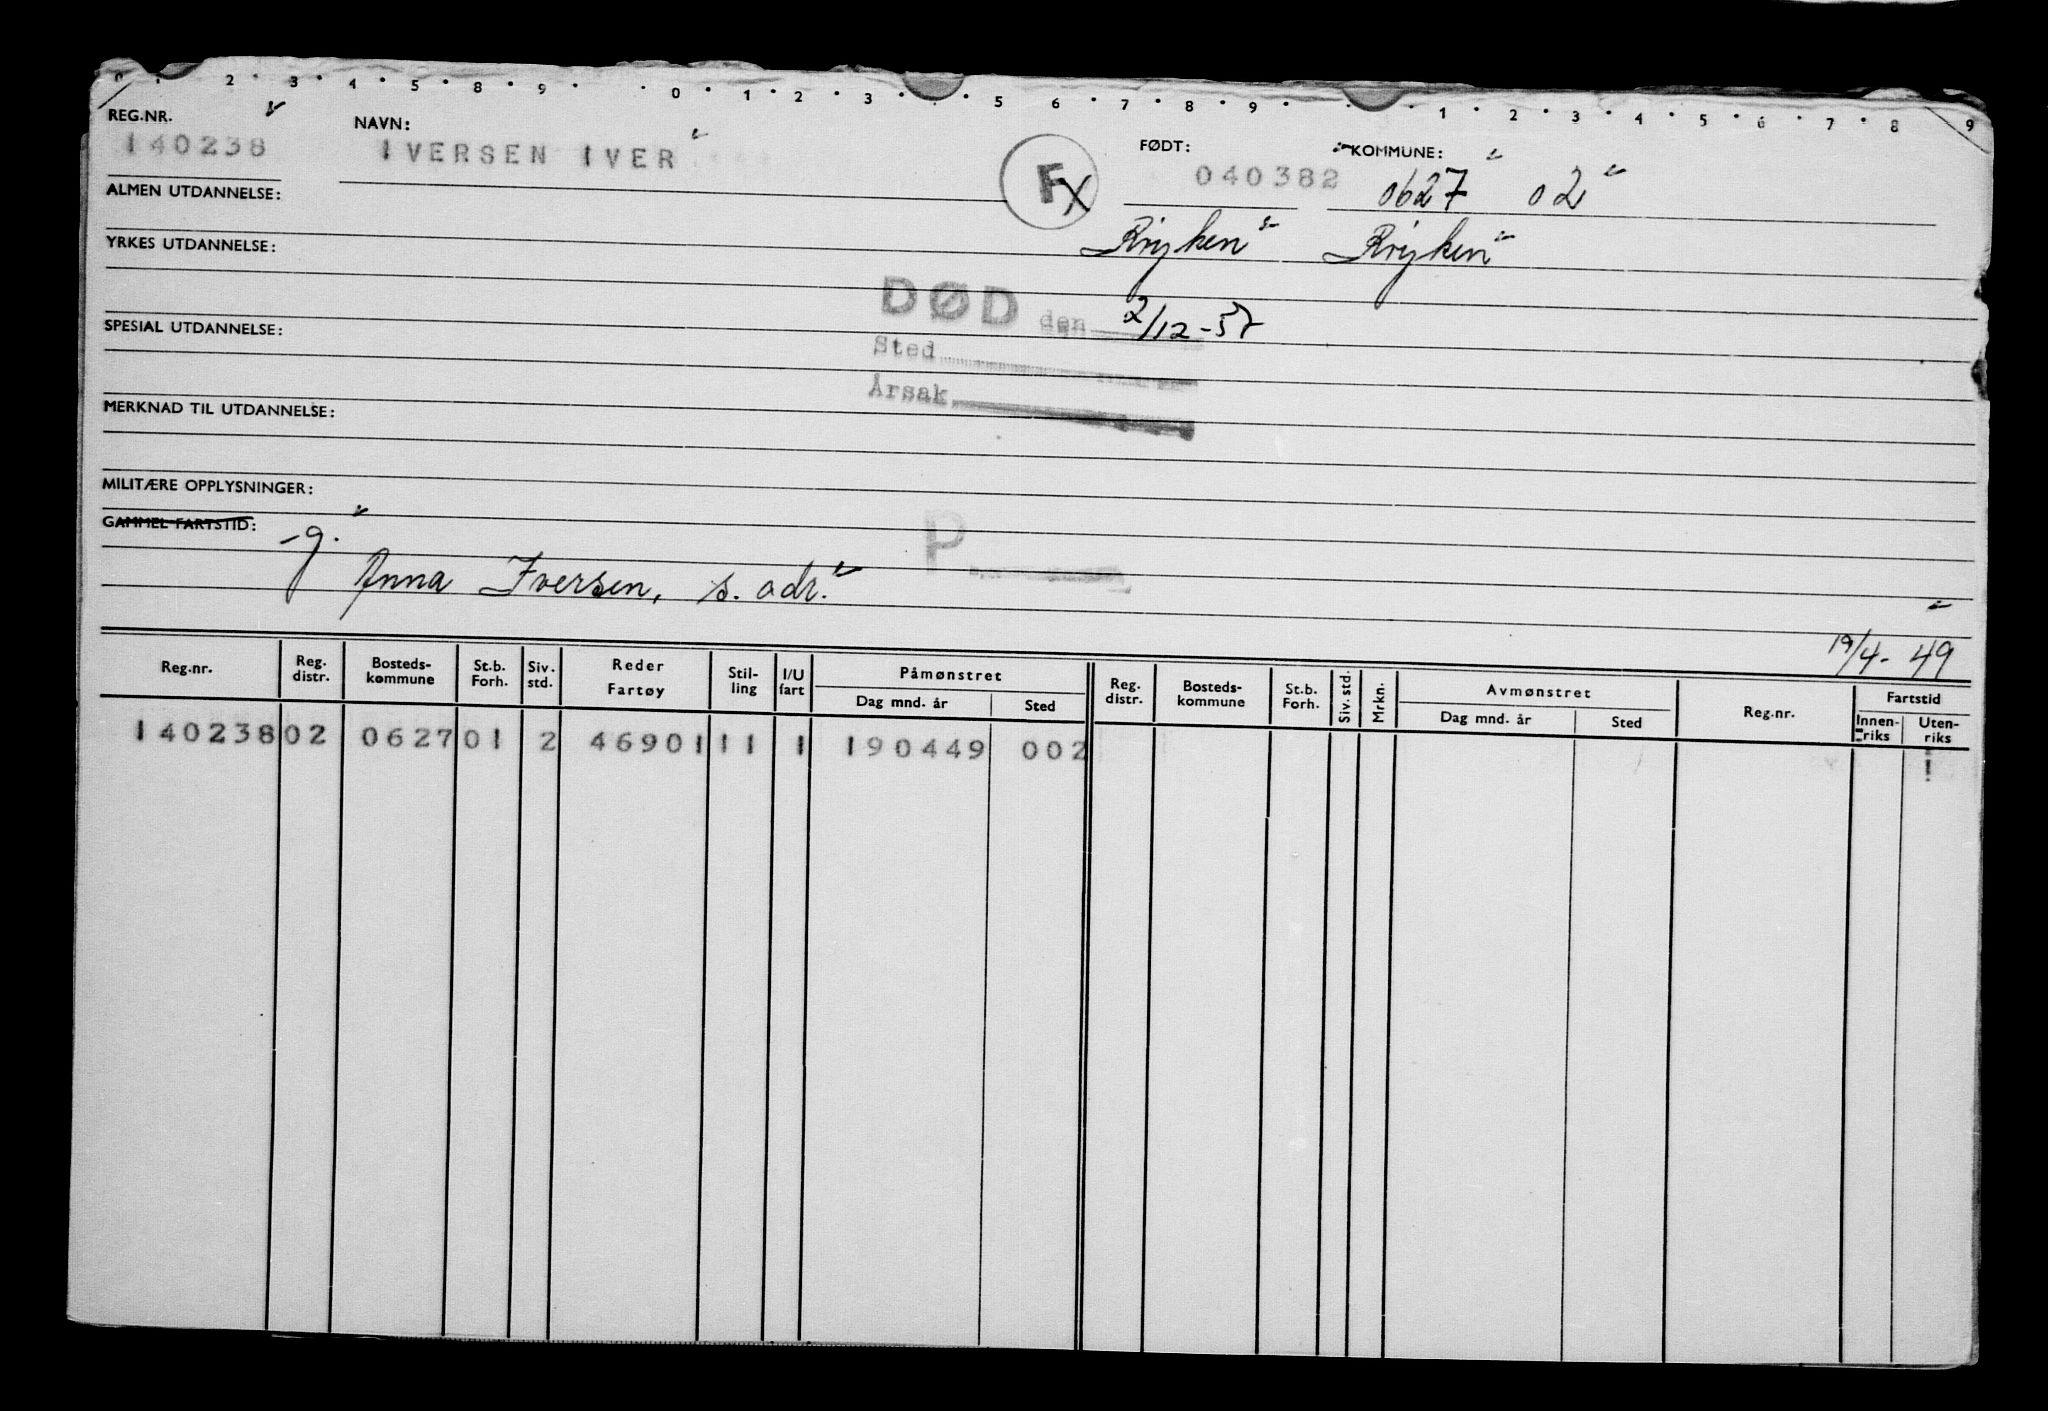 0 1 2 3 4 5 8 9 0 1 2 3 5 6 7 8 9 1 2 3 4 5 6 7 8 9
REG.NR. NAVN: FØDT: KOMMUNE:
140238 IVERSEN IVER F X 040382 0627 02
ALMEN UTDANNELSE:
Røyken Røyken
YRKES UTDANNELSE:
DØD den 2/12-57
SPESIAL UTDANNELSE:
Sted
Årsak
MERKNAD TIL UTDANNELSE:
MILITÆRE OPPLYSNINGER:
GAMMEL FARTSTID:
-g. P
Anna Iversen, s. adr.
19/4-49
Reg.nr. Reg. distr. Bosteds-kommune St.b. Forh. Siv. std. Reder Fartøy Stil-ling I/U fart Påmønstret Dag mnd. år Sted Reg. distr. Bosteds-kommune St.b. Forh. Siv. std. Mrkn. Avmønstret Dag mnd. år Sted Reg.nr. Fartstid Innen-riks Uten-riks
140238 02 0627 01 2 46901 11 1 190449 002